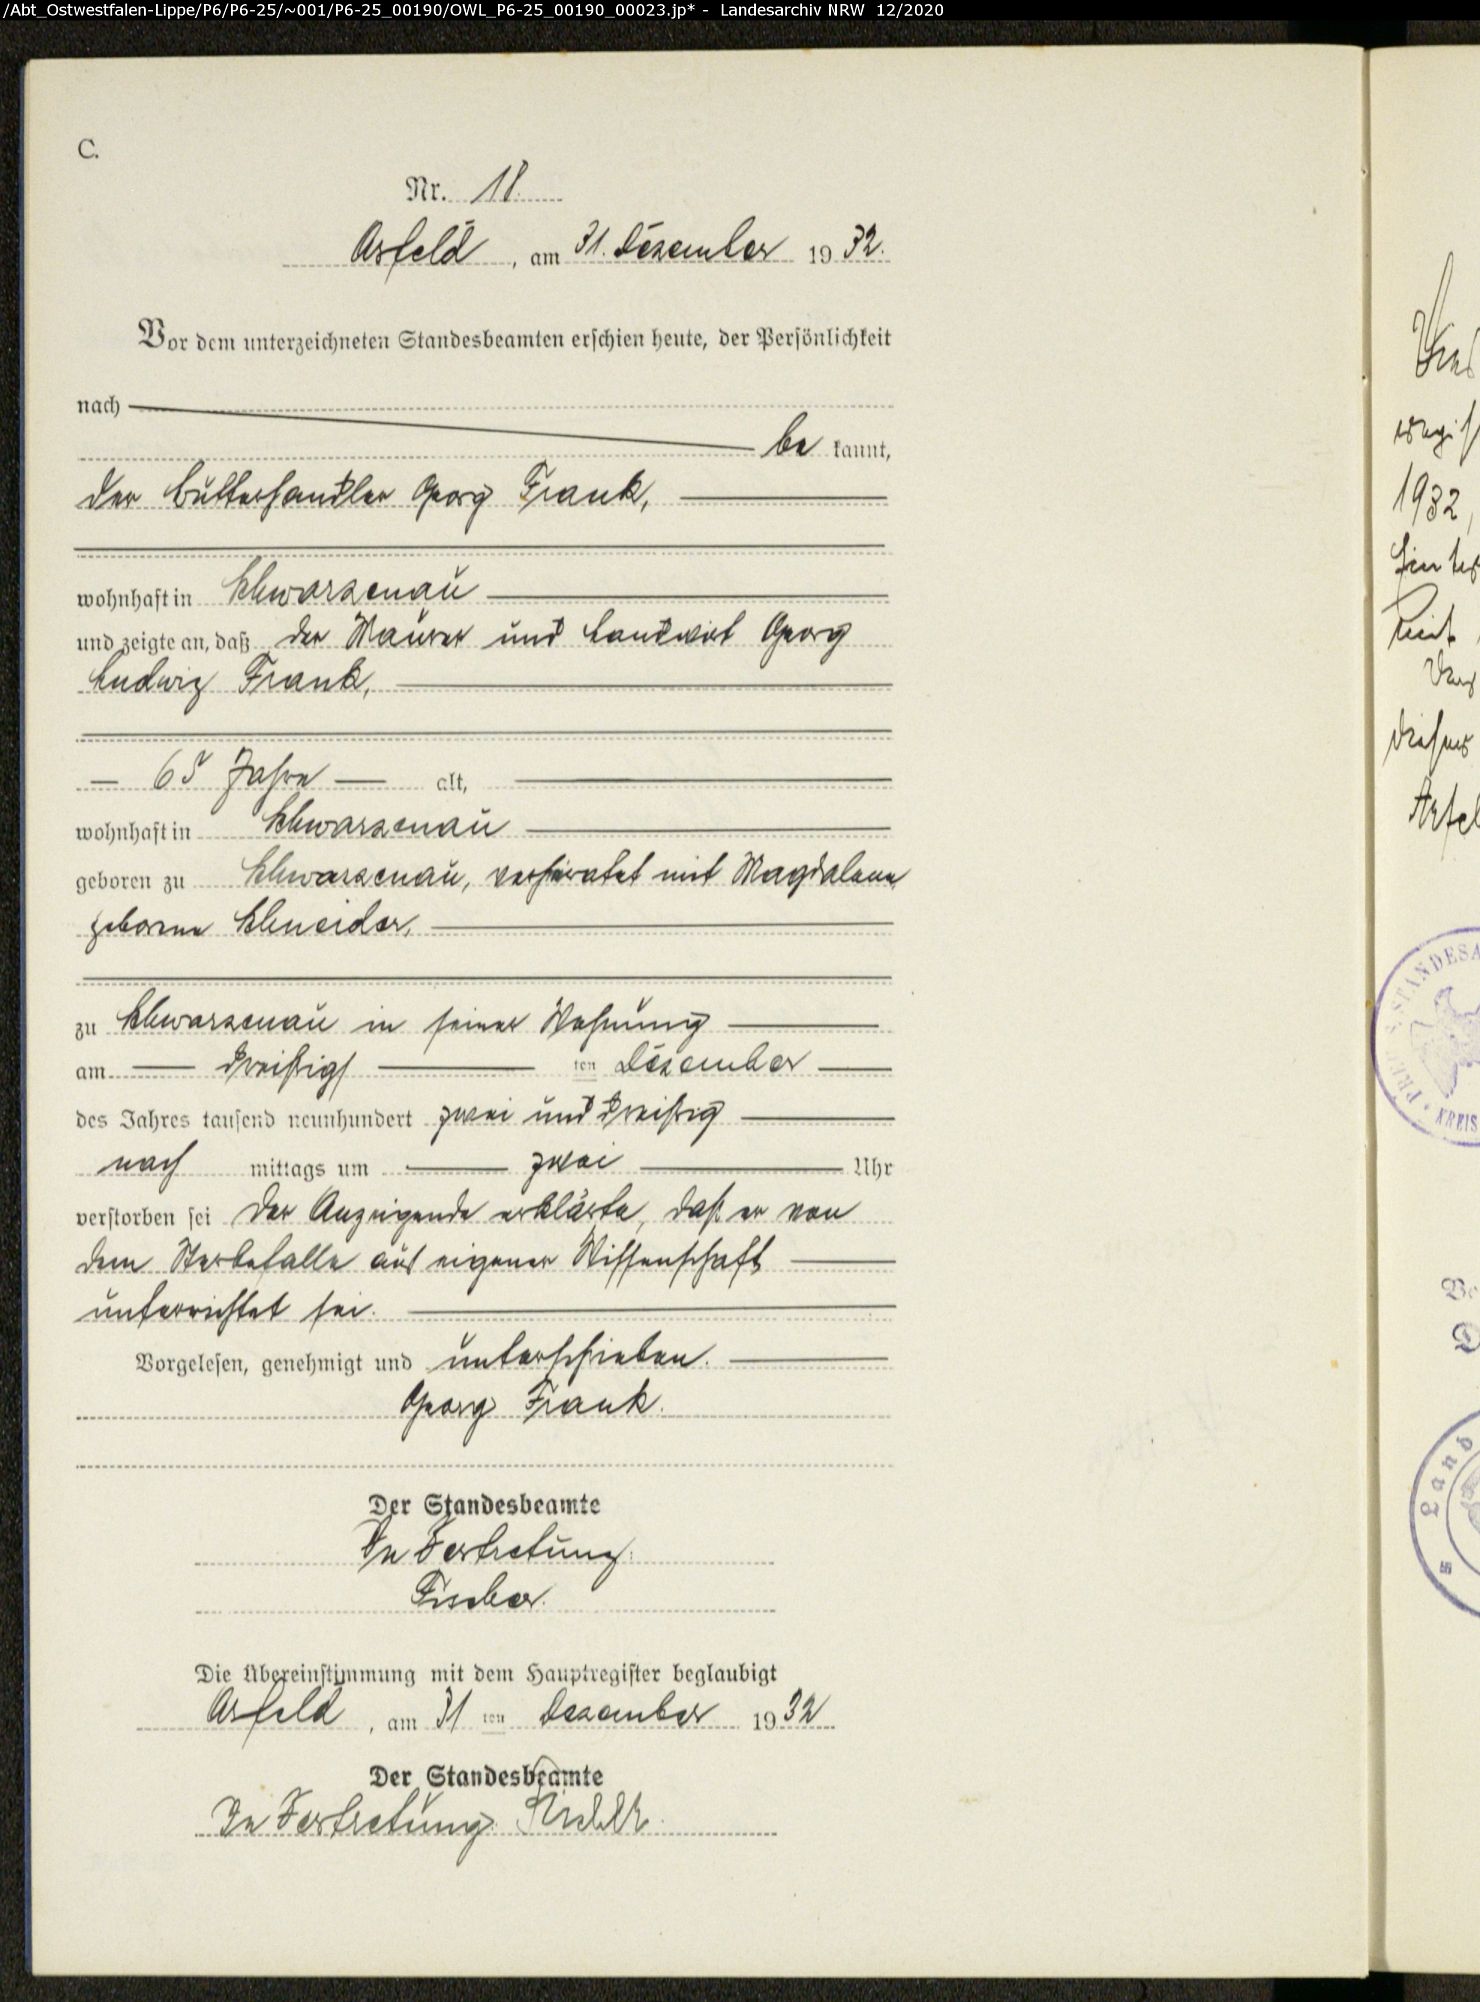 /Abt_Ostwestfalen-Lippe/P6/P6-25/~001/P6-25_00190/OWL_P6-25_00190_00023.jp* - Landesarchiv NRW 12/2020
C.
Nr. 18.
Arfeld, am 31. Dezember 1932.
Vor dem unterzeichneten Standesbeamten erschien heute, der Persönlichkeit
nach
be kannt,
der Butterhandler Georg Frank,
wohnhaft in Schwarzenau
und zeigte an, daß der Maurer und Landwirt Georg
Ludwig Frank,
65 Jahre alt,
wohnhaft in Schwarzenau
geboren zu Schwarzenau, verheiratet mit Magdalene
geborene Schneider,
zu Schwarzenau in seiner Wohnung
am dreißigs ten Dezember
des Jahres tausend neunhundert zwei und dreißig
nach mittags um zwei Uhr
verstorben sei Der Anzeigende erklärte, daß er von
dem Sterbefalle aus eigener Wissenschaft
unterrichtet sei.
Vorgelesen, genehmigt und unterschrieben.
Georg Frank.
Der Standesbeamte
In Vertretung:
Fischer.
Die Übereinstimmung mit dem Hauptregister beglaubigt
Arfeld, am 31 ten Dezember 1932
Der Standesbeamte
In Vertretung:
1932,